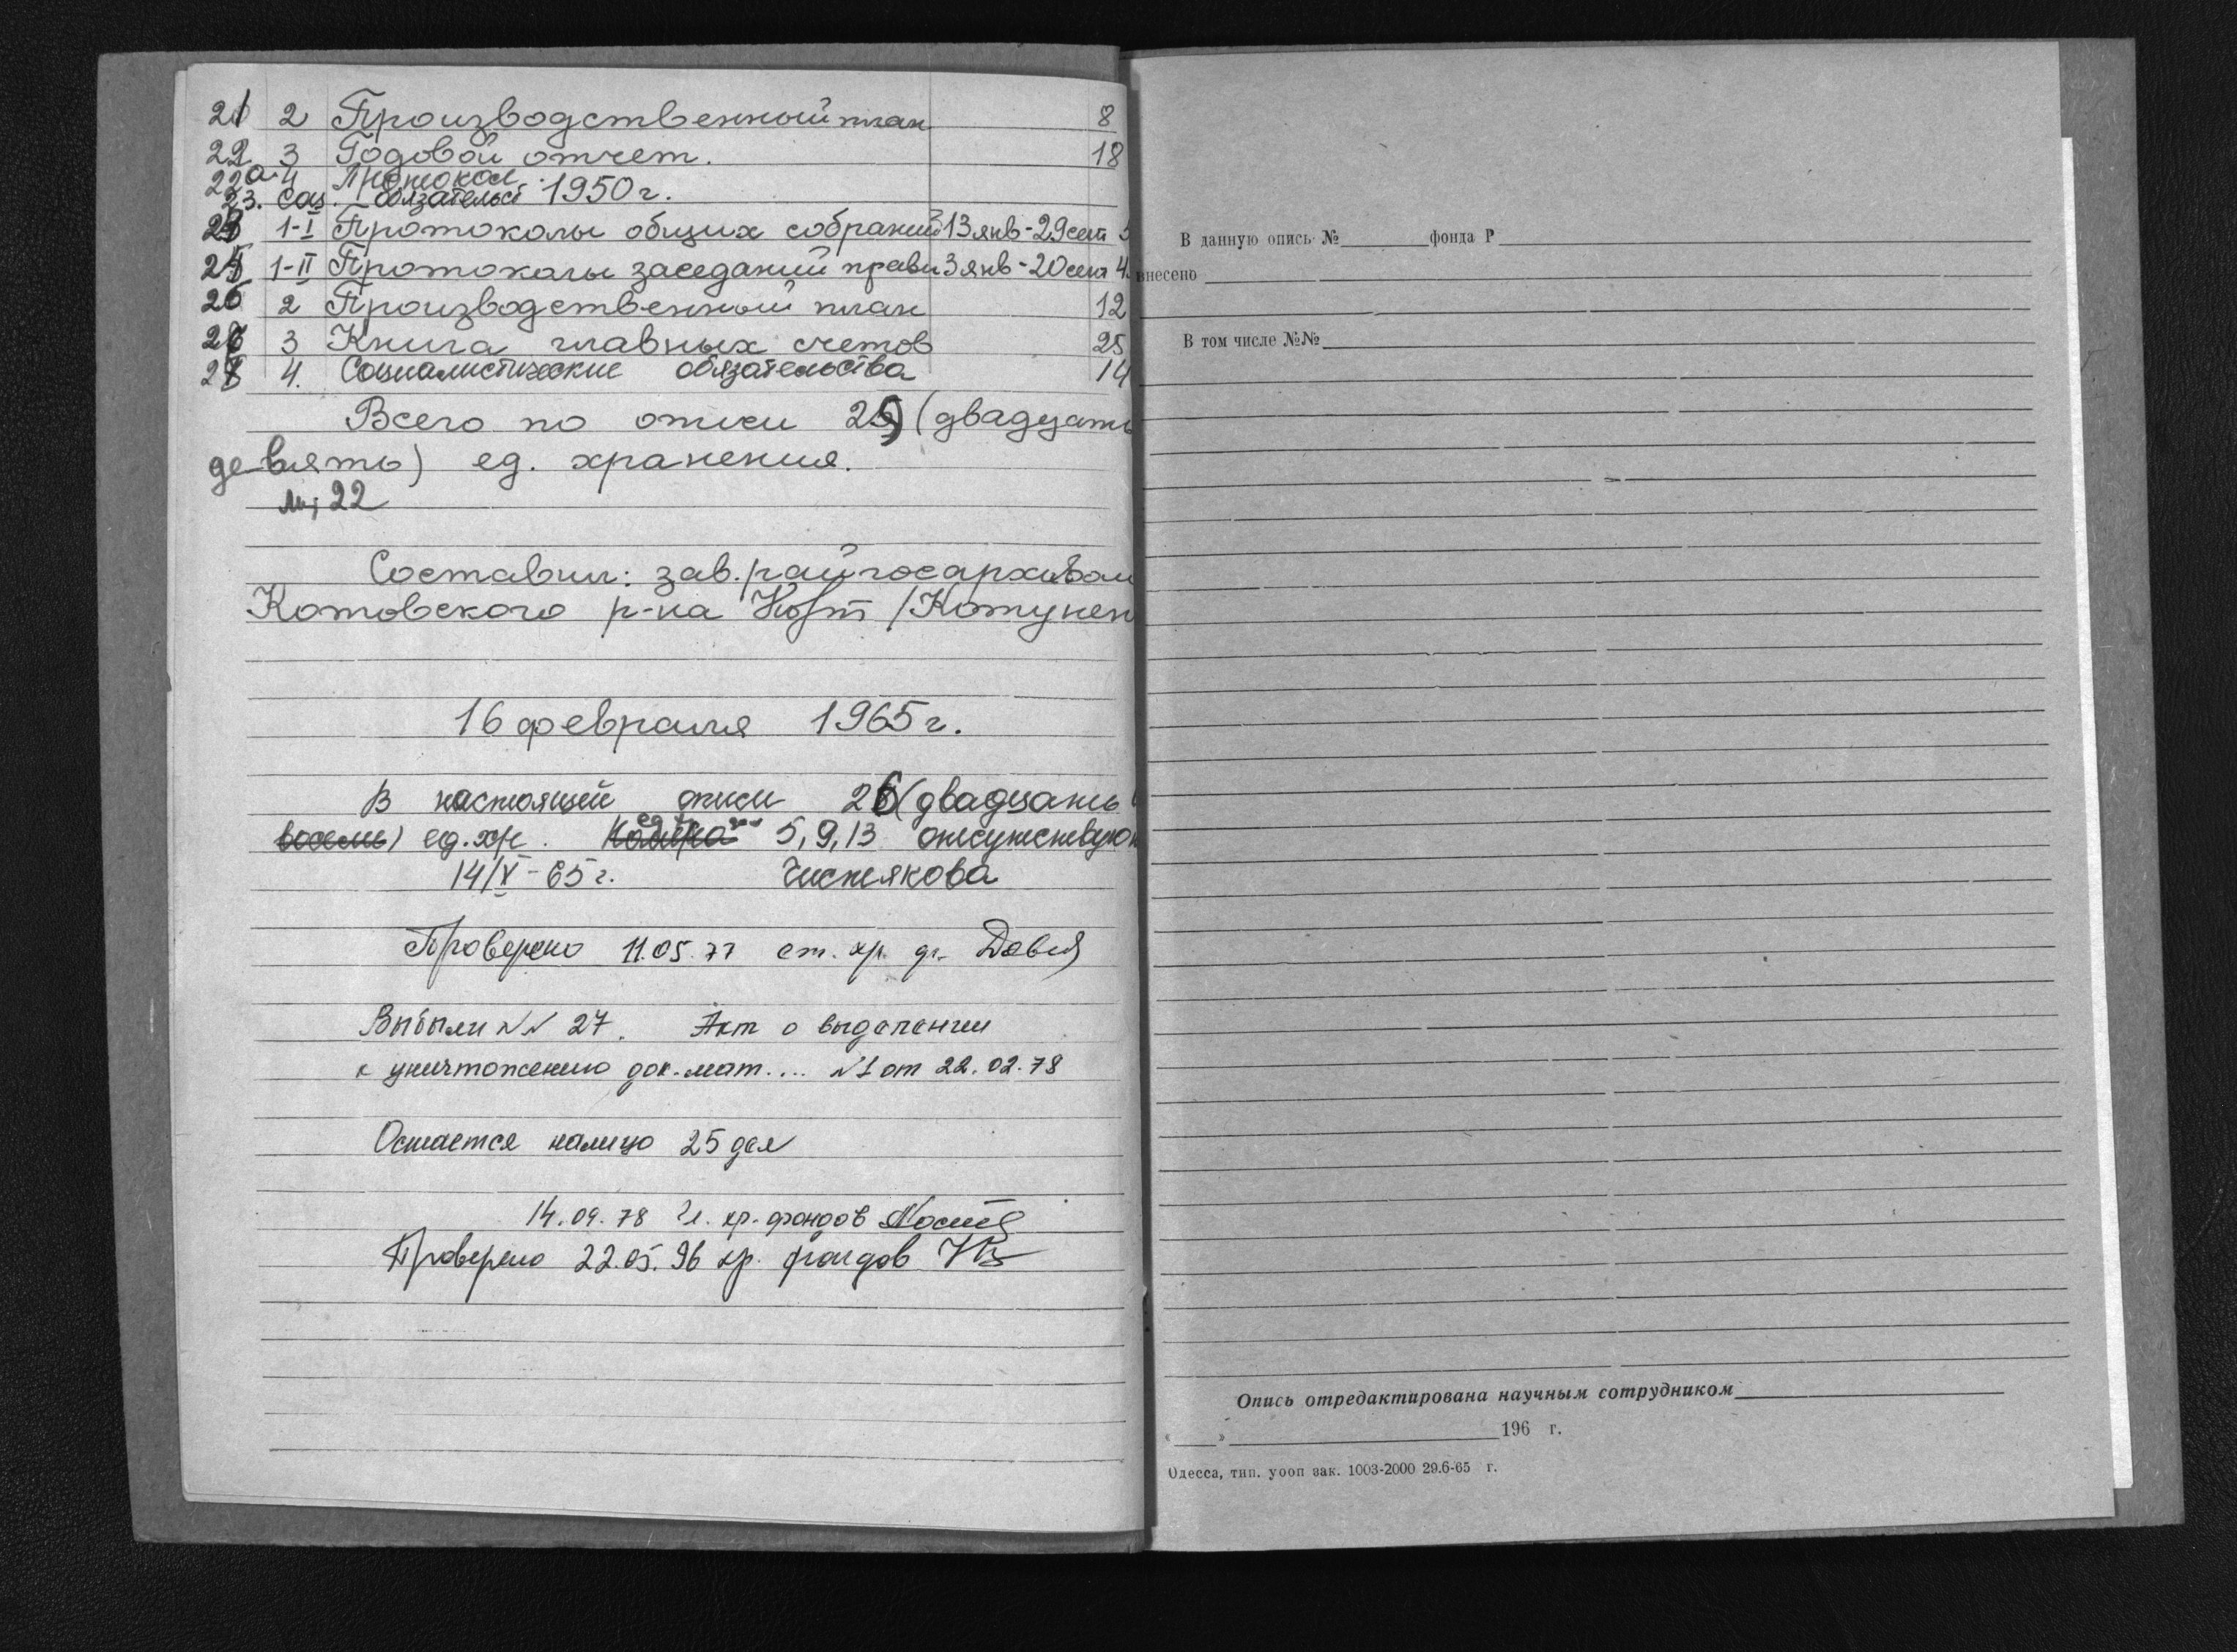 21 2 Производственный план 8
22 3 Годовой отчет. 18
22а 4 Протокол
23. Соц. обязательст 1950 г.
24 1-I Протоколы общих собраний 13 янв - 29 сент
25 1-II Протоколы заседаний прав 3 янв - 20 сент 4
26 2 Производственный план 12
27 3 Книга главных счетов 25
28 4. Социалистические обязательства 14
Всего по описи 29 (двадцать
девять) ед. хранения.
22
Составил: зав. райгосархивом
Котовского р-на /Котунен
16 февраля 1965 г.
В настоящей описи 26 (двадцать
восемь) ед. хр. 5, 9, 13 отсутствуют
14/V - 65 г. Чистякова
Проверено 11.05.77 ст. хр. ф.
Выбыли NN 27. Акт о выделении
к уничтожению док. мат.... N1 от 22.02.78
Остается налицо 25 дел
14.09.78 Гл. хр. фондов
Проверено 22.05.96 хр. фондов
В данную опись № фонда Р
внесено
В том числе №№
Опись отредактирована научным сотрудником
« » 196 г.
Одесса, тип. уооп зак. 1003-2000 29.6-65 г.